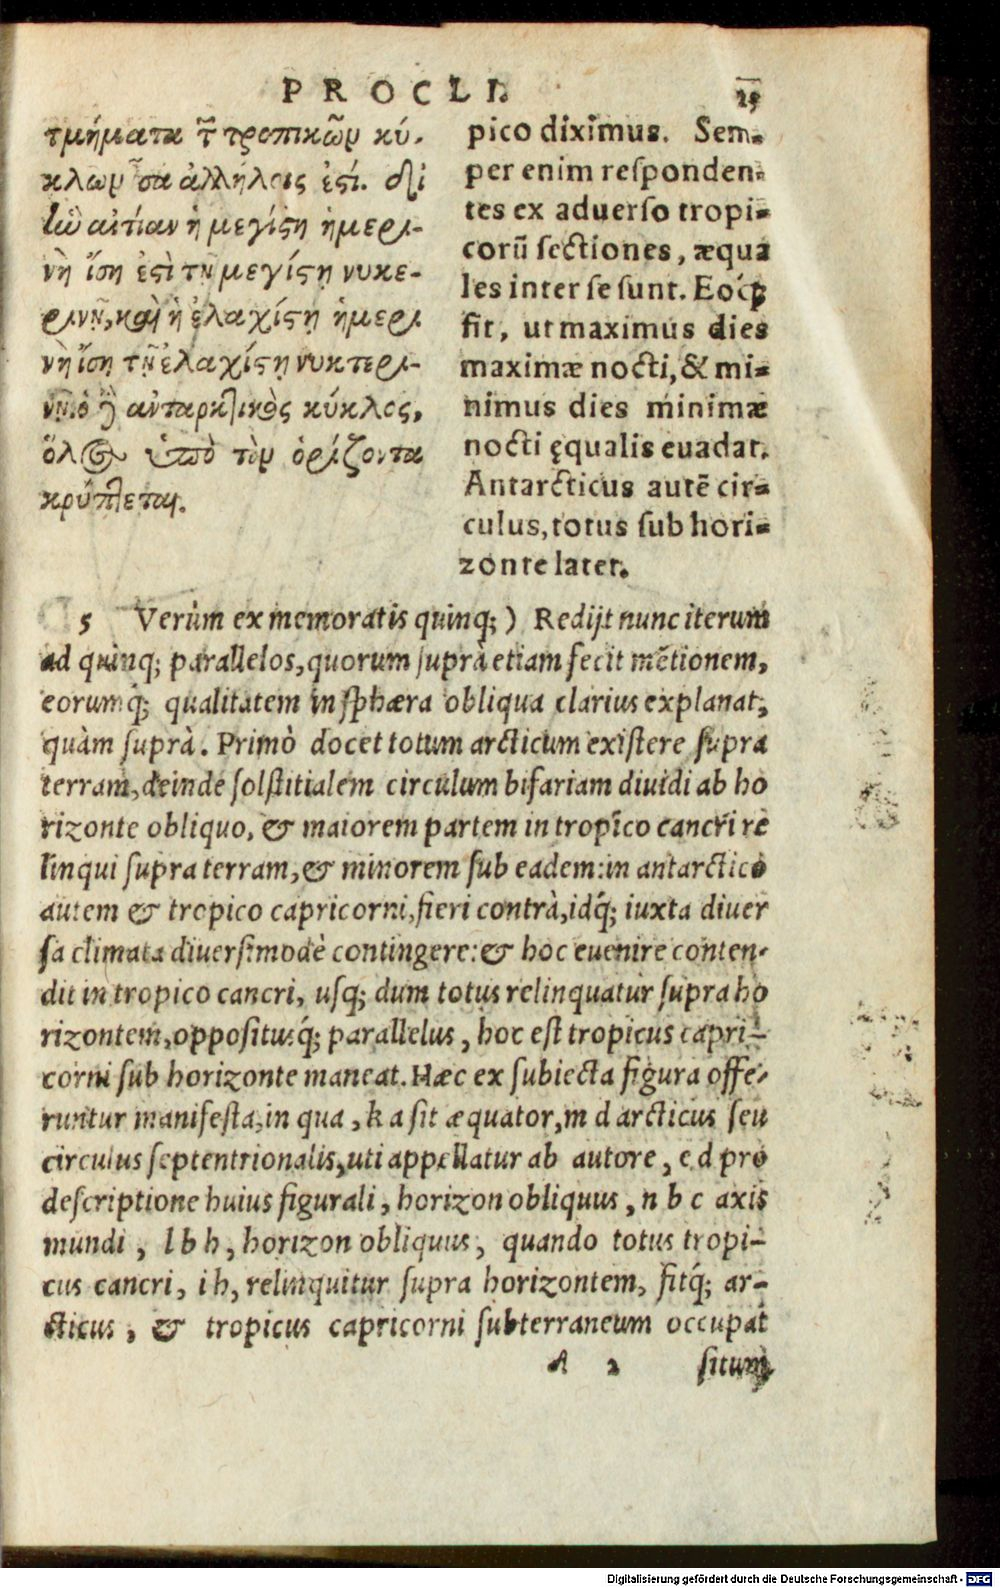 PROCLI. 25
τμήματα τ͂ τροπικῶν κύ-
κλων ἴσα ἀλλήλοις ἐςί. δι
ἰὼ αἰτίαν ἡ μεγίςη ἡμερι-
νὴ ἴση ἐςὶ τῇ μεγίςῃ νυκτε-
ρινῇ, καὶ ἡ ἐλαχίςη ἡμερι
νὴ ἴση τῇ ἐλαχίςῃ νυκτερι-
νῇ. ὁ ἢ ἀνταρκτικὸς κύκλος,
ὅλος ὑπὸ τὸν ὁρίζοντα
κρύπτεται.
pico diximus. Sem-
per enim responden-
tes ex aduerso tropi-
corũ sectiones, æqua
les inter se sunt. Eoq́ꝫ
fit, ut maximus dies
maximæ nocti, & mi-
nimus dies minimæ
nocti ęqualis euadat.
Antarcticus autẽ cir-
culus, totus sub hori-
zonte latet.
5 Verùm ex memoratis quinq;) Redijt nunc iterum
ad quinq; parallelos, quorum suprà etiam fecit mẽtionem,
eorumq́; qualitatem in sphæra obliqua clarius explanat,
quàm suprà. Primò docet totum arcticum existere supra
terram, deinde solstitialem circulum bifariam diuidi ab ho
rizonte obliquo, & maiorem partem in tropico cancri re
linqui supra terram, & minorem sub eadem: in antarctico
autem & tropico capricorni, fieri contrà, idq́; iuxta diuer
sa climata diuersimodè contingere: & hoc euenire conten-
dit in tropico cancri, usq; dum totus relinquatur supra ho
rizontem, oppositusq́; parallelus, hoc est tropicus capri-
corni sub horizonte maneat. Hæc ex subiecta figura offe-
runtur manifesta, in qua, k a sit æquator, m d arcticus seu
circulus septentrionalis, uti appellatur ab autore, e d pro
descriptione huius figurali, horizon obliquus, n b c axis
mundi, l b h, horizon obliquus, quando totus tropi-
cus cancri, i h, relinquitur supra horizontem, fitq́; ar-
cticus, & tropicus capricorni subterraneum occupat
2 situm,
Digitalisierung gefördert durch die Deutsche Forschungsgemeinschaft - DFG